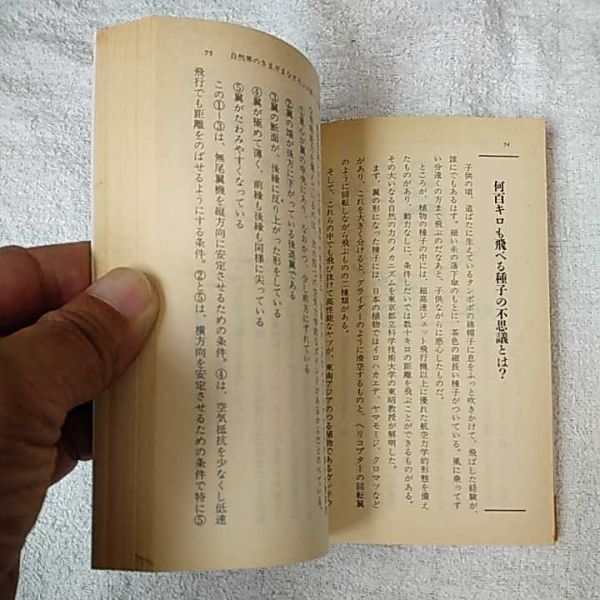 74
何百キロも飛べる種子の不思議とは?
子供の頃、道ばたに生えているタンポポの綿帽子に息をふっと吹きかけて、飛ばした経験が、
誰にでもあるはず。細い糸の落下傘のもとに、茶色の細長い種子がついている。風に乗ってず
いぶん遠くの方まで飛ぶのだなあと、子供ながらに感心したものだ。
ところが、植物の種子の中には、超高速ジェット飛行機以上に優れた航空力学的形態を備え
たものがあり、動力なしに、条件しだいでは数十キロの距離を飛ぶことができるものがある。
その大いなる自然の力のメカニズムを東京都立科学技術大学の東昭教授が解明した。
まず、翼の形になった種子には、日本の植物ではイロハカエデ、ヤマモミジ、クロマツなど
があり、これを大きく分けると、グライダーのように滑空するものと、ヘリコプターの回転翼
のように回転しながら飛ぶもの二種類がある。
そして、これらの中でも飛び抜けて高性能なヤツが、東南アジアのつる植物である
75
自然界のさまざまな
①重心が翼の中央にあり、なおかつ、少し前方にずれている
②翼の端が後方に下がっている後退翼である
③翼の断面が、後縁に反り上がった形をしている
④翼が極めて薄く、前縁も後縁も同様に尖っている
⑤翼がたわみやすくなっている
この①~③は、無尾翼機を縦方向に安定させるための条件。④は、空気抵抗を少なくし低速
飛行でも距離をのばせるようにする条件。②と⑤は、横方向を安定させるための条件で特に⑤